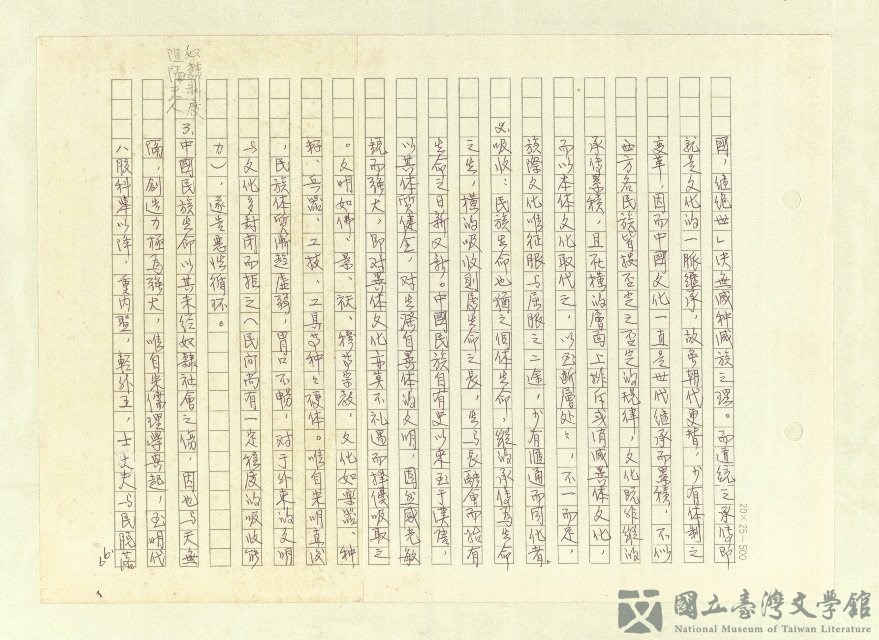 國，繼絕世」決無滅种滅族之理。而道統之承傳即
就是文化的一脈继承，故每朝代更替，少有体制之
变革，因而中國文化一直是世代继承而累積，不似
西方各民族皆误否定之否定的规律，文化既非縱的
承傳累積，且在橫的層面上排斥或消滅異体文化，
而以本体文化取代之，以至断層处处，不一而足，
族際文化唯征服与屈服之二途，少有匯通而同化者。
2.吸收：民族生命也猶之個体生命，縱的承傳為生命
之生，橫的吸收則為生命之長，生与長融會而始有
生命之日新又新。中國民族自有史以來至于漢唐，
以其体質健全，对生活自養体的文明，固然感光敏
銳而强大，即对異体文化亦莫不礼遇而擇優吸取之
。文明如佛、景、祆、穆等宗教，文化如樂器、种
籽、兵器、工技、工具等种々硬体。唯自宋明直後
，民族体質漸趋虛弱，胃口不暢，对于外來的文明
与文化多封闭而拒之（民间尚有一定程度的吸收能
力），遂告惡性循环。
奴隸制度
阻隔天人
3.中國民族生命以其未经奴隸社會之傷，因也与天無
隔，創造力極為强大，唯自宋儒理學興起，至明代
八股科舉以降，重内聖，輕外王，士大夫与民脱落
66
20×25=500
國立臺灣文學館
National Museum of Taiwan Literature